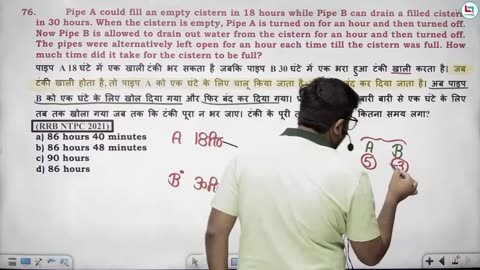 76. Pipe A could fill an empty cistern in 18 hours while Pipe B can drain a filled cistern
in 30 hours. When the cistern is empty, Pipe A is turned on for an hour and then turned off.
Now Pipe B is allowed to drain out water from the cistern for an hour and then turned off.
The pipes were alternatively left open for an hour each time till the cistern was full. How
much time did it take for the cistern to be full?
पाइप A 18 घंटे में एक खाली टंकी भर सकता है जबकि पाइप B 30 घंटे में एक भरा हुआ टंकी खाली करता है। जब
टंकी खाली होता है, तो पाइप A को एक घंटे के लिए चालू किया जाता है बंद कर दिया जाता है। अब पाइप
B को एक घंटे के लिए खोल दिया गया और फिर बंद कर दिया गया। बारी बारी से एक घंटे के लिए
तब तक खोला गया जब तक कि टंकी पूरा न भर जाए। टंकी के पूरी कितना समय लगा?
(RRB NTPC 2021)
a) 86 hours 40 minutes
b) 86 hours 48 minutes
c) 90 hours
d) 86 hours
A 18
B 30
A B
5 -3